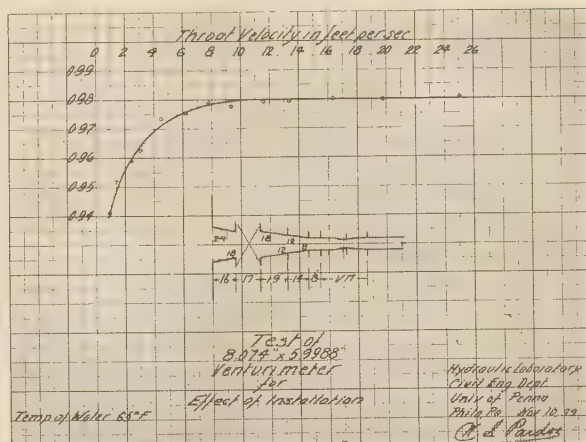 Throat Velocity in feet per sec
0 2 4 6 8 10 12 14 16 18 20 22 24 26
0.99
0.98
0.97
0.96
0.95
0.94
24 18 12 8
18 12
16 17 19 14 8 VM
Test of
8.074" x 5.9988"
Venturi meter
for
Effect of Installation
Temp of Water 65°F
Hydraulic Laboratory
Civil Eng Dept
Univ of Penna
Phila Pa Nov 10, 39
W S Pardoe